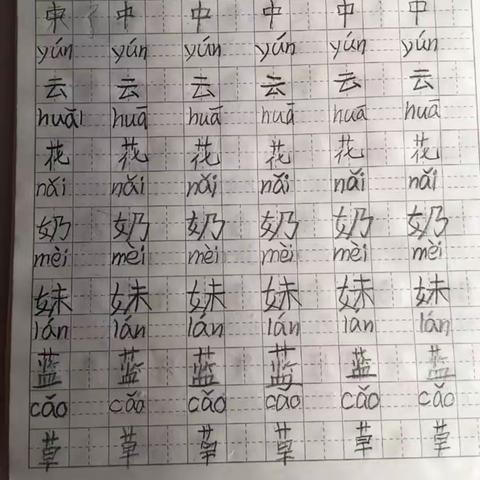 中 中 中 中 中 中
yún yún yún yún yún yún
云 云 云 云 云 云
huāi huā huā huā huā huā
花 花 花 花 花 花
nǎi nǎi nǎi nǎi nǎi nǎi
奶 奶 奶 奶 奶 奶
mèi mèi mèi mèi mèi mèi
妹 妹 妹 妹 妹 妹
lán lán lán lán lán lán
蓝 蓝 蓝 蓝 蓝 蓝
cǎo cǎo cǎo cǎo cǎo cǎo
草 草 草 草 草 草